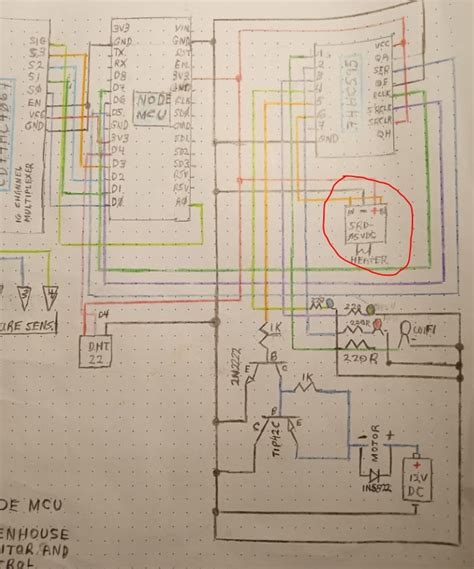 SIG
S3
S2
S1
S0
EN
VCC
GND
CD74HC4067
16 CHANNEL
MULTIPLEXER
3V3
GND
TX
RX
D8
D7
D6
D5
GND
3V3
D4
D3
D2
D1
D0
NODE
MCU
VIN
GND
RST
EN
3V3
GND
CLK
SD0
SD1
SD2
SD3
RSV
RSV
A0
1
2
3
4
5
6
7
74HC595
VCC
QA
SER
OE
RCLK
SRCLK
SRCLR
QH
IN - +
SRD-
05VDC
HEATER
3
4
URE SENS.
D4
DHT
22
220
220
220R
220R
WIFI
1K
2N2222
B
C
E
1K
B
C
E
TIP42C
MOTOR
- +
1N5822
+
12V
DC
-
DE MCU
ENHOUSE
ITOR AND
TROL